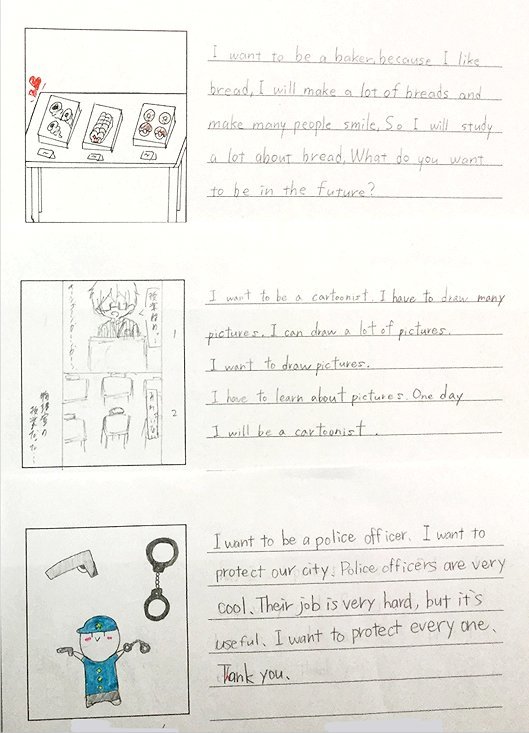 I want to be a baker, because I like
bread, I will make a lot of breads and
make many people smile. So I will study
a lot about bread. What do you want
to be in the future?
I want to be a cartoonist. I have to draw many
pictures. I can draw a lot of pictures.
I want to draw pictures.
I have to learn about pictures. One day
I will be a cartoonist.
1
2
I want to be a police officer. I want to
protect our city. Police officers are very
cool. Their job is very hard, but it's
useful. I want to protect every one.
Tank you.